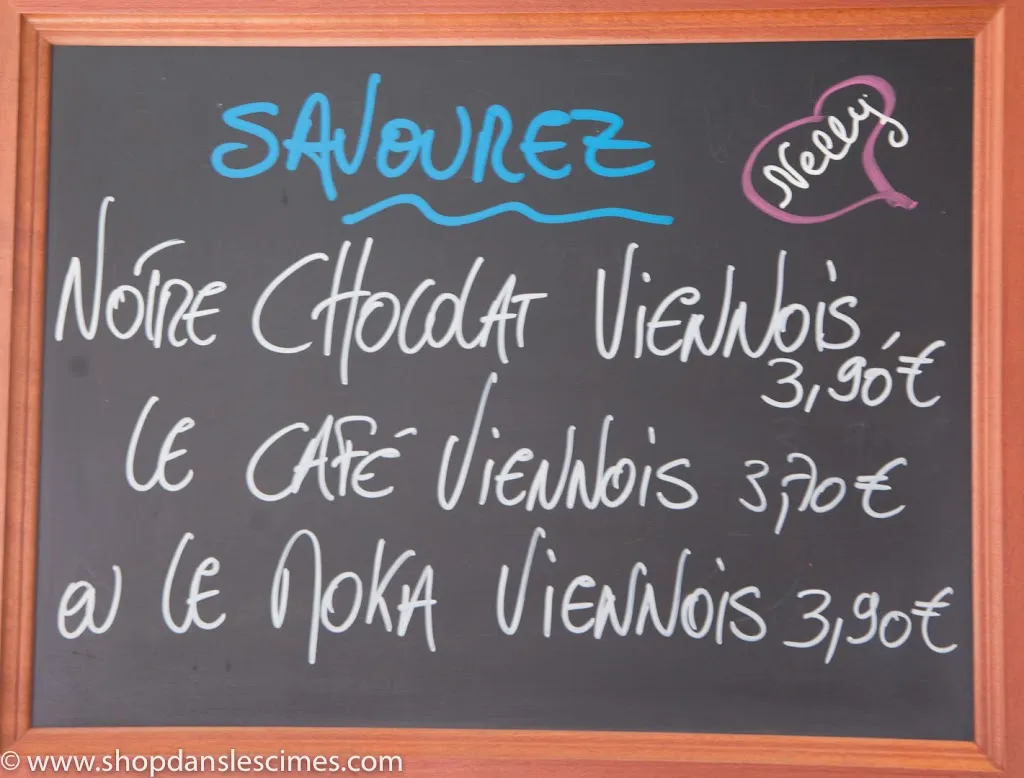 SAVOUREZ
Nelly
NÔTRE CHOCOLAT VIENNOIS
3,90€
LE CAFÉ VIENNOIS 3,70€
OU LE MOKA VIENNOIS 3,90€
© www.shopdanslescimes.com